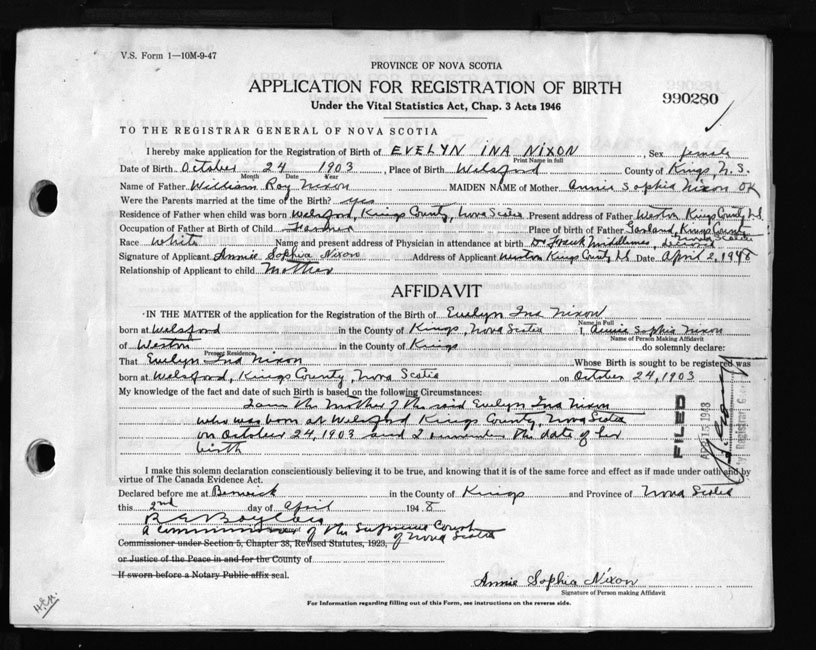 V.S. Form 1—10M-9-47
PROVINCE OF NOVA SCOTIA
APPLICATION FOR REGISTRATION OF BIRTH
Under the Vital Statistics Act, Chap. 3 Acts 1946
990280
TO THE REGISTRAR GENERAL OF NOVA SCOTIA
I hereby make application for the Registration of Birth of EVELYN INA NIXON, Sex female
Print Name in full
Date of Birth October 24 1903, Place of Birth Welsford County of Kings N.S.
Month Date Year
Name of Father William Roy Nixon MAIDEN NAME of Mother Annie Sophia Nixon OK
Were the Parents married at time of the Birth? yes
Residence of Father when child was born Welsford, Kings County, Nova Scotia Present address of Father Weston Kings County N.S.
Occupation of Father at Birth of Child Farmer Place of birth of Father Garland, Kings County
Nova Scotia
Race White Name and present address of Physician in attendance at birth Dr Frank Middlemas, deceased
Signature of Applicant Annie Sophia Nixon Address of Applicant Weston Kings County N.S. Date April 2, 1948
Relationship of Applicant to child Mother
AFFIDAVIT
IN THE MATTER of the application for the Registration of the Birth of Evelyn Ina Nixon
Name in Full
born at Welsford in the County of Kings, Nova Scotia I, Annie Sophia Nixon
Name of Party Making Affidavit
of Weston in the County of Kings do solemnly declare:
Present Residence
That Evelyn Ina Nixon Whose Birth is sought to be registered was
born at Welsford, Kings County, Nova Scotia on October 24, 1903
My knowledge of the fact and date of such Birth is based on the following Circumstances:
I am the mother of the said Evelyn Ina Nixon
who was born at Welsford Kings County, Nova Scotia
on October 24, 1903 and I remember the date of her
birth
FILED
APR 15 1948
I make this solemn declaration conscientiously believing it to be true, and knowing that it is of the same force and effect as if made under oath and by
virtue of The Canada Evidence Act.
Declared before me at Berwick in the County of Kings and Province of Nova Scotia
this 2nd day of April 1948
a Commissioner of the Supreme Court
of Nova Scotia
Commissioner under Section 5, Chapter 38, Revised Statutes, 1923,
or Justice of the Peace in and for the County of
If sworn before a Notary Public affix seal.
Annie Sophia Nixon
Signature of Person making Affidavit
For Information regarding filling out of this Form, see instructions on the reverse side.